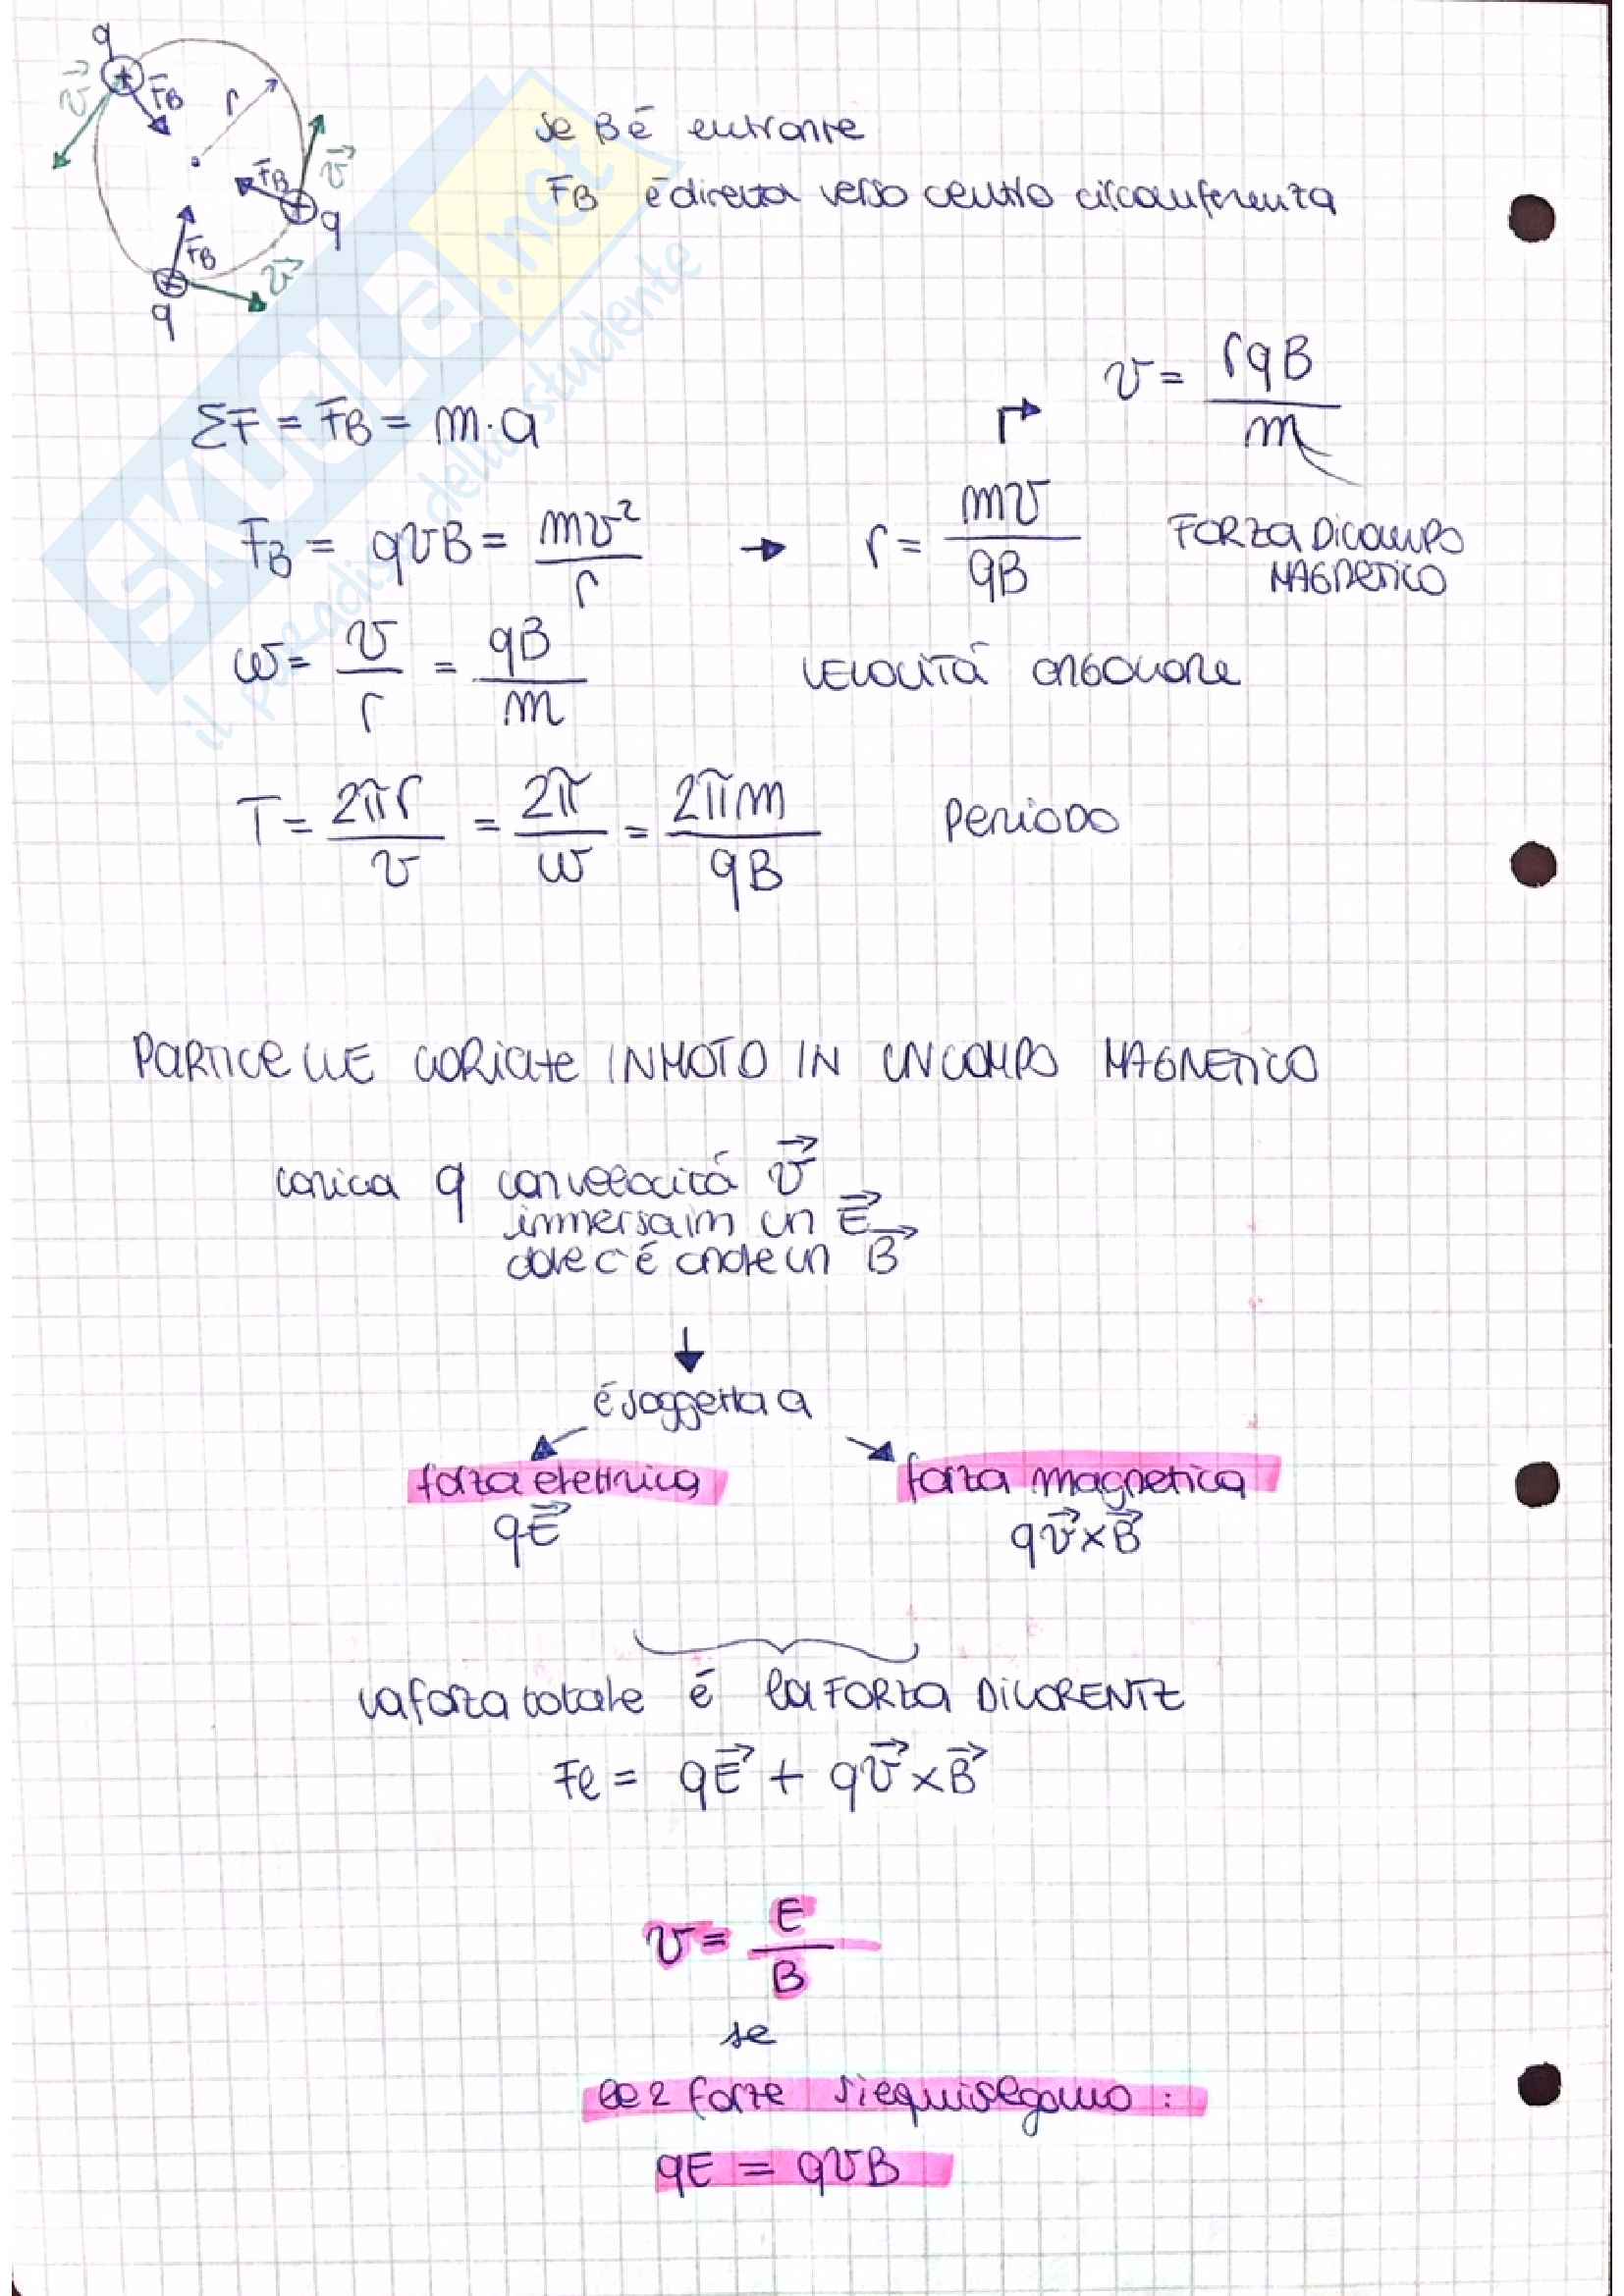 q
v⃗
F_B
r
F_B
v⃗
q
F_B
v⃗
q
se B é entrante
F_B é diretta verso centro circonferenza
SKUOLA.net
il paradiso dello studente
v = rqB/m
ΣF = F_B = m·a
F_B = qvB = mv²/r → r = mv/qB FORZA DI CAMPO
MAGNETICO
ω = v/r = qB/m VELOCITÁ ANGOLARE
T = 2πr/v = 2π/ω = 2πm/qB PERIODO
PARTICELLE CARICATE IN MOTO IN UN CAMPO MAGNETICO
carica q con velocitá v⃗
immersa in un E⃗
dove c'é anche un B⃗
é soggetta a
forza elettrica forza magnetica
qE⃗ qv⃗×B⃗
la forza totale é la FORZA DI LORENTZ
Fe = qE⃗ + qv⃗×B⃗
v = E/B
se
le 2 forze si equivalgono :
qE = qvB